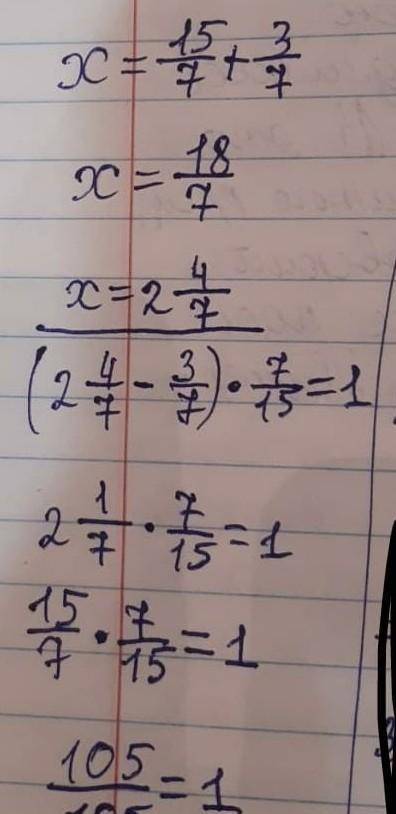 x = 15/7 + 3/7
x = 18/7
x = 2 4/7
(2 4/7 - 3/7) · 7/15 = 1
2 1/7 · 7/15 = 1
15/7 · 7/15 = 1
105/105 = 1